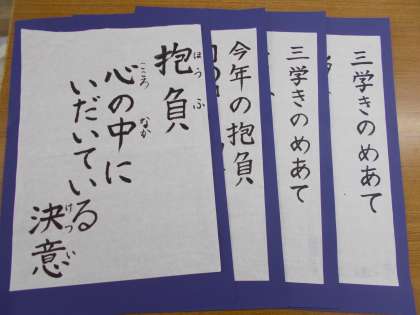 抱負
ほうふ
心の中に
こころ なか
いだいている
決意
けつい
今年の抱負
三学きのめあて
三学きのめあて